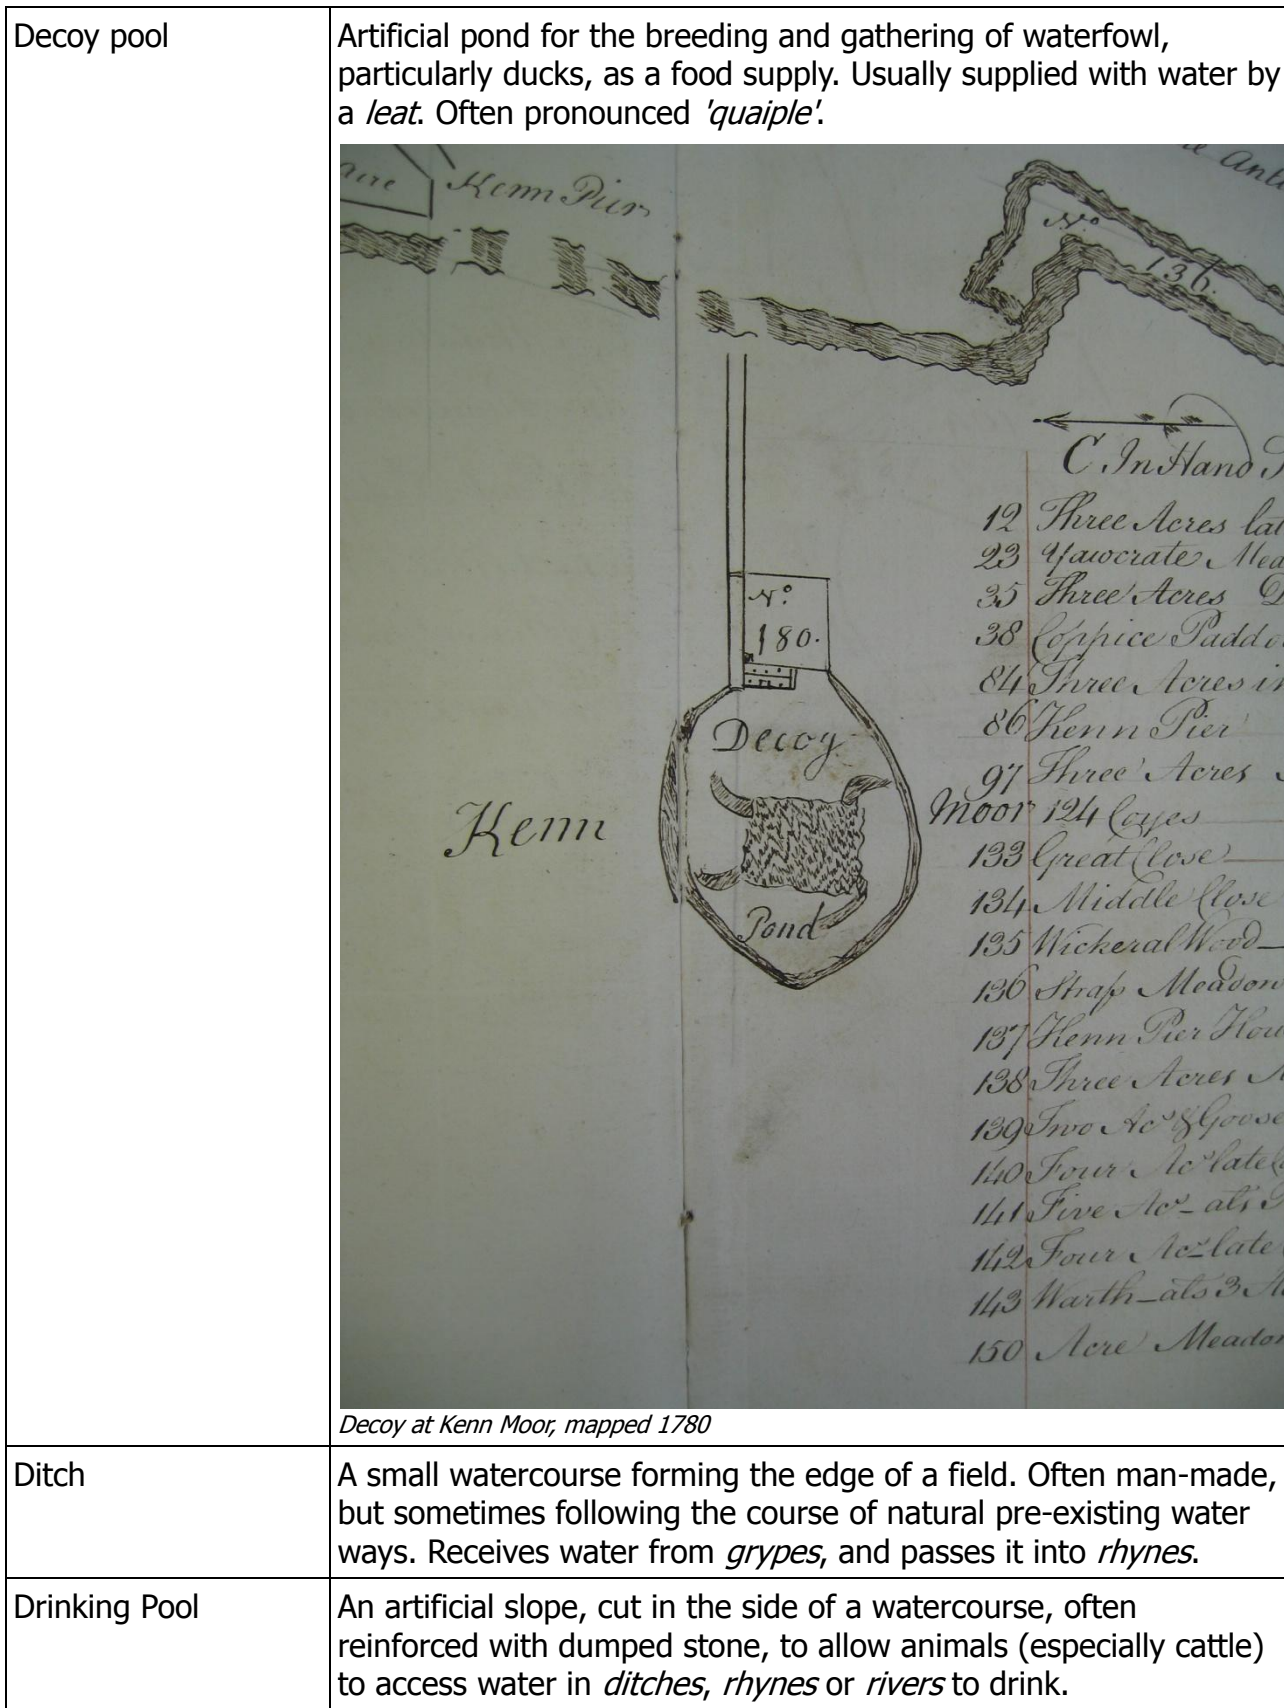 Decoy pool
Artificial pond for the breeding and gathering of waterfowl,
particularly ducks, as a food supply. Usually supplied with water by
a leat. Often pronounced 'quaiple'.
Kenn Pier
No
136.
C In Hand
12 Three Acres
23 Yawcrate
35 Three Acres
38 Coppice
84 Three Acres in
86 Kenn Pier
97 Three Acres
124 Coyes
133 Great Close
134 Middle Close
135 Wickeral Wood
136 Meadow
137 Kenn Pier
138 Three Acres
139 Two Acs & Goose
140 Four Acs late
141 Five Acs als
142 Four Acs late
143 Warth als 3
150 Acre
No
180.
Decoy
Pond
Kenn
Moor
Decoy at Kenn Moor, mapped 1780
Ditch
A small watercourse forming the edge of a field. Often man-made,
but sometimes following the course of natural pre-existing water
ways. Receives water from grypes, and passes it into rhynes.
Drinking Pool
An artificial slope, cut in the side of a watercourse, often
reinforced with dumped stone, to allow animals (especially cattle)
to access water in ditches, rhynes or rivers to drink.